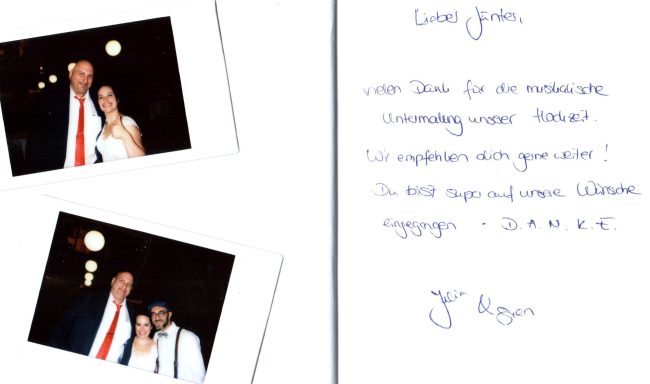 Lieber Günter,
vielen Dank für die musikalische
Untermalung unserer Hochzeit.
Wir empfehlen dich gerne weiter!
Du bist super auf unsere Wünsche
eingegangen - D.A.N.K.E.
Julia &